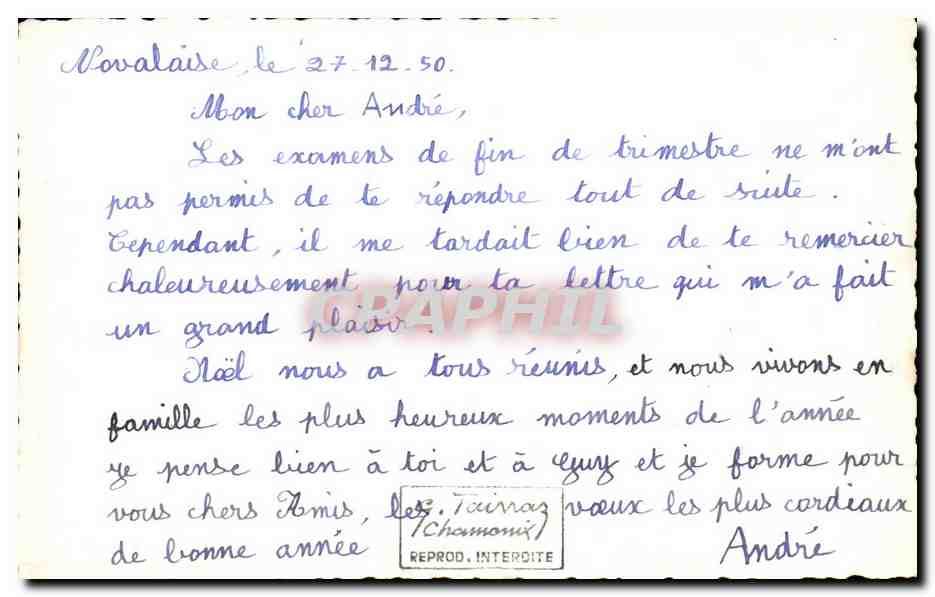 Novalaise, le 27-12-50.
Mon cher André,
Les examens de fin de trimestre ne m'ont
pas permis de te répondre tout de suite.
Cependant, il me tardait bien de te remercier
chaleureusement pour ta lettre qui m'a fait
un grand plaisir.
CRAPHIL
Noël nous a tous réunis, et nous vivons en
famille les plus heureux moments de l'année
Je pense bien à toi et à Guy et je forme pour
vous chers Amis, les vœux les plus cordiaux
de bonne année
André
G. Tairraz
Chamonix
REPROD. INTERDITE